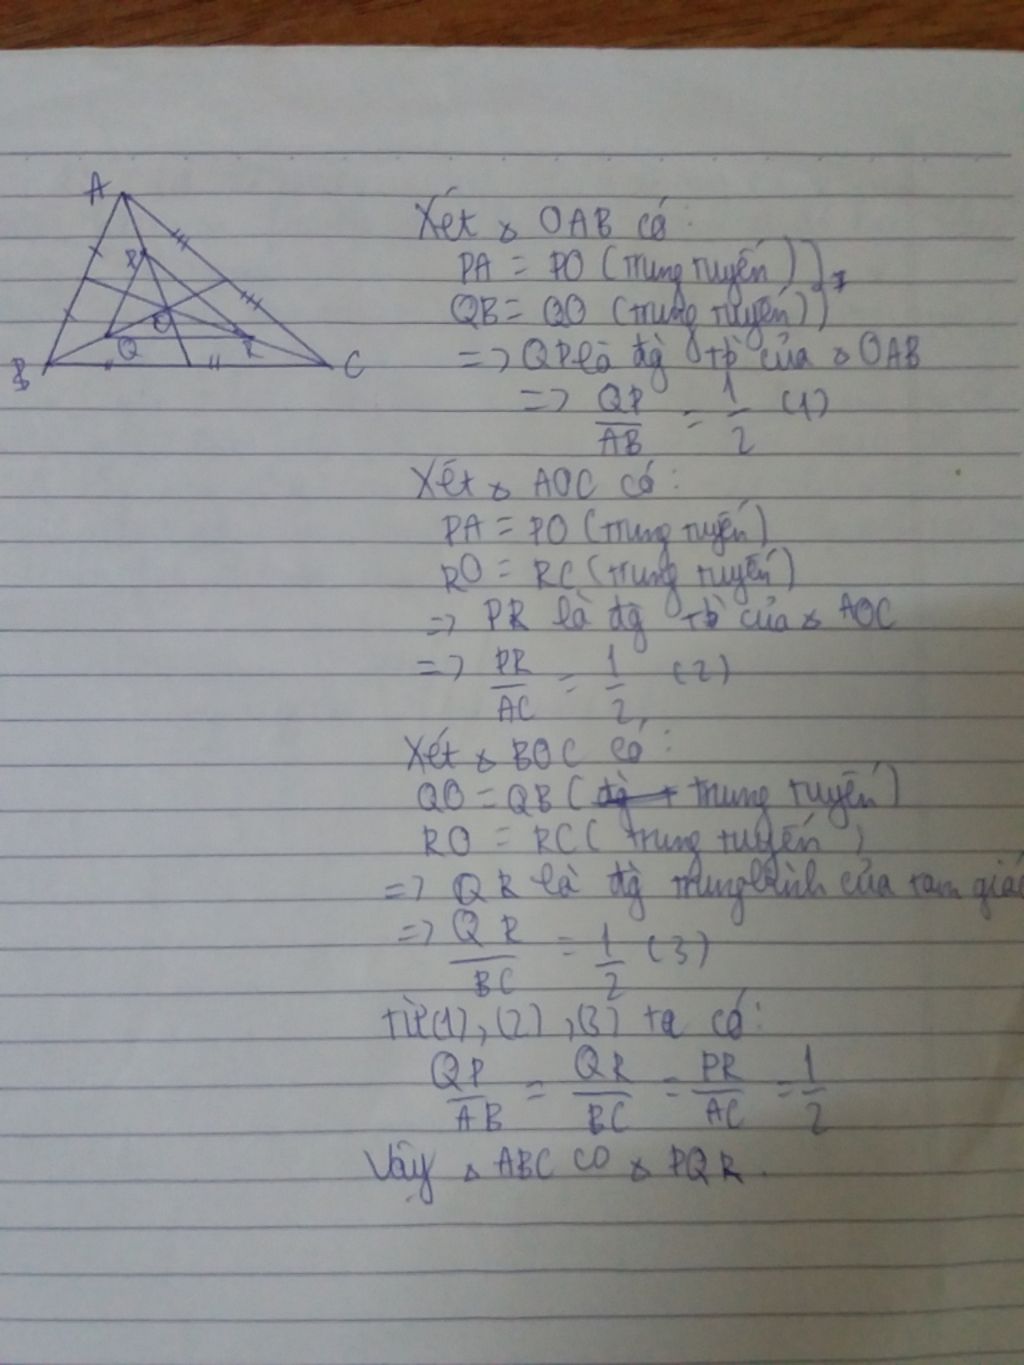 A
P
O
Q
R
B
C
Xét △ OAB có:
PA = PO (trung tuyến)
QB = QO (trung tuyến)
=> QP là đg tb của △ OAB
=> QP/AB = 1/2 (1)
Xét △ AOC có:
PA = PO (trung tuyến)
RO = RC (trung tuyến)
=> PR là đg tb của △ AOC
=> PR/AC = 1/2 (2)
Xét △ BOC có:
QO = QB ( trung tuyến)
RO = RC ( trung tuyến )
=> QR là đg trung bình của tam giác
=> QR/BC = 1/2 (3)
từ (1), (2), (3) ta có:
QP/AB = QR/BC = PR/AC = 1/2
Vậy △ ABC ∽ △ PQR.